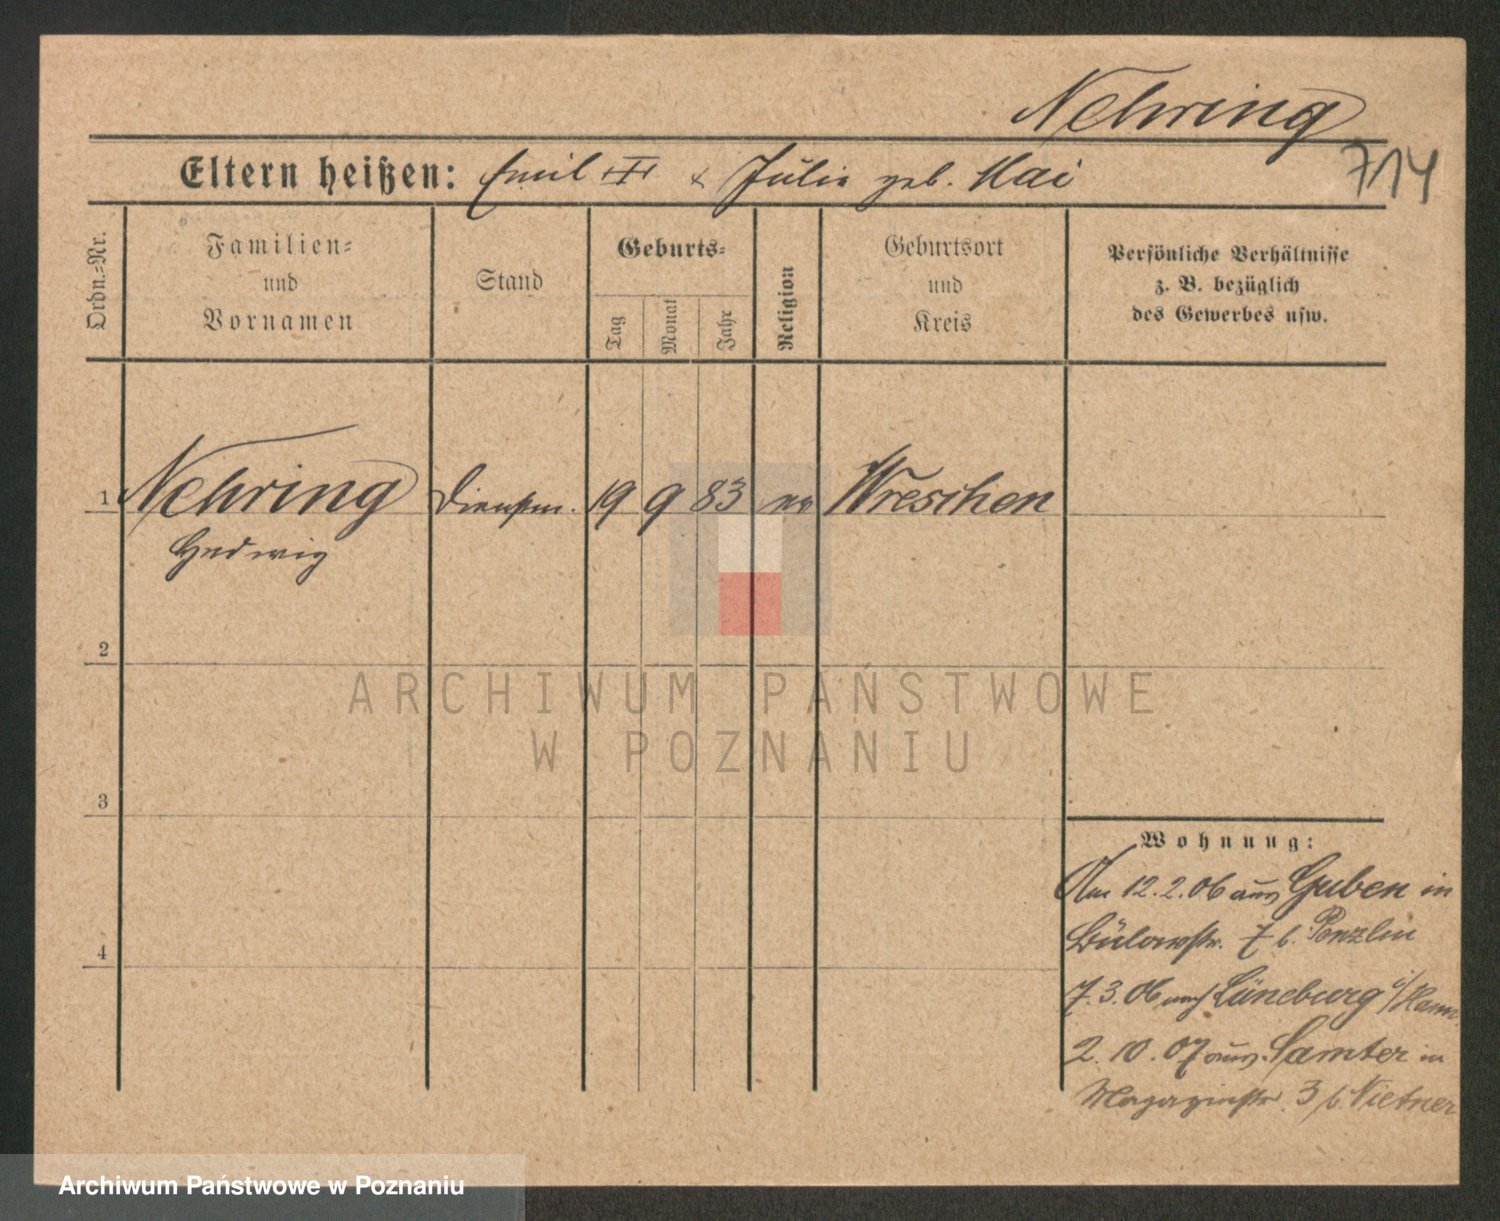 Nehring
714
Eltern heißen: Emil III & Julie geb. Mai
Ordn.=Nr.
Familien=
und
Vornamen
Stand
Geburts=
Tag
Monat
Jahr
Religion
Geburtsort
und
Kreis
Persönliche Verhältnisse
z. B. bezüglich
des Gewerbes usw.
1 Nehring Dienstm. 19 9 83 ev Wreschen
Hedwig
2
3
4
ARCHIWUM PAŃSTWOWE
W POZNANIU
Wohnung:
Am 12.2.06 aus Guben in
Bülowstr. 7 b. Ponzlin
7.3.06 nach Lüneburg i/Hann.
2.10.07 aus Samter in
Magazinstr. 3 b. Vietner
Archiwum Państwowe w Poznaniu